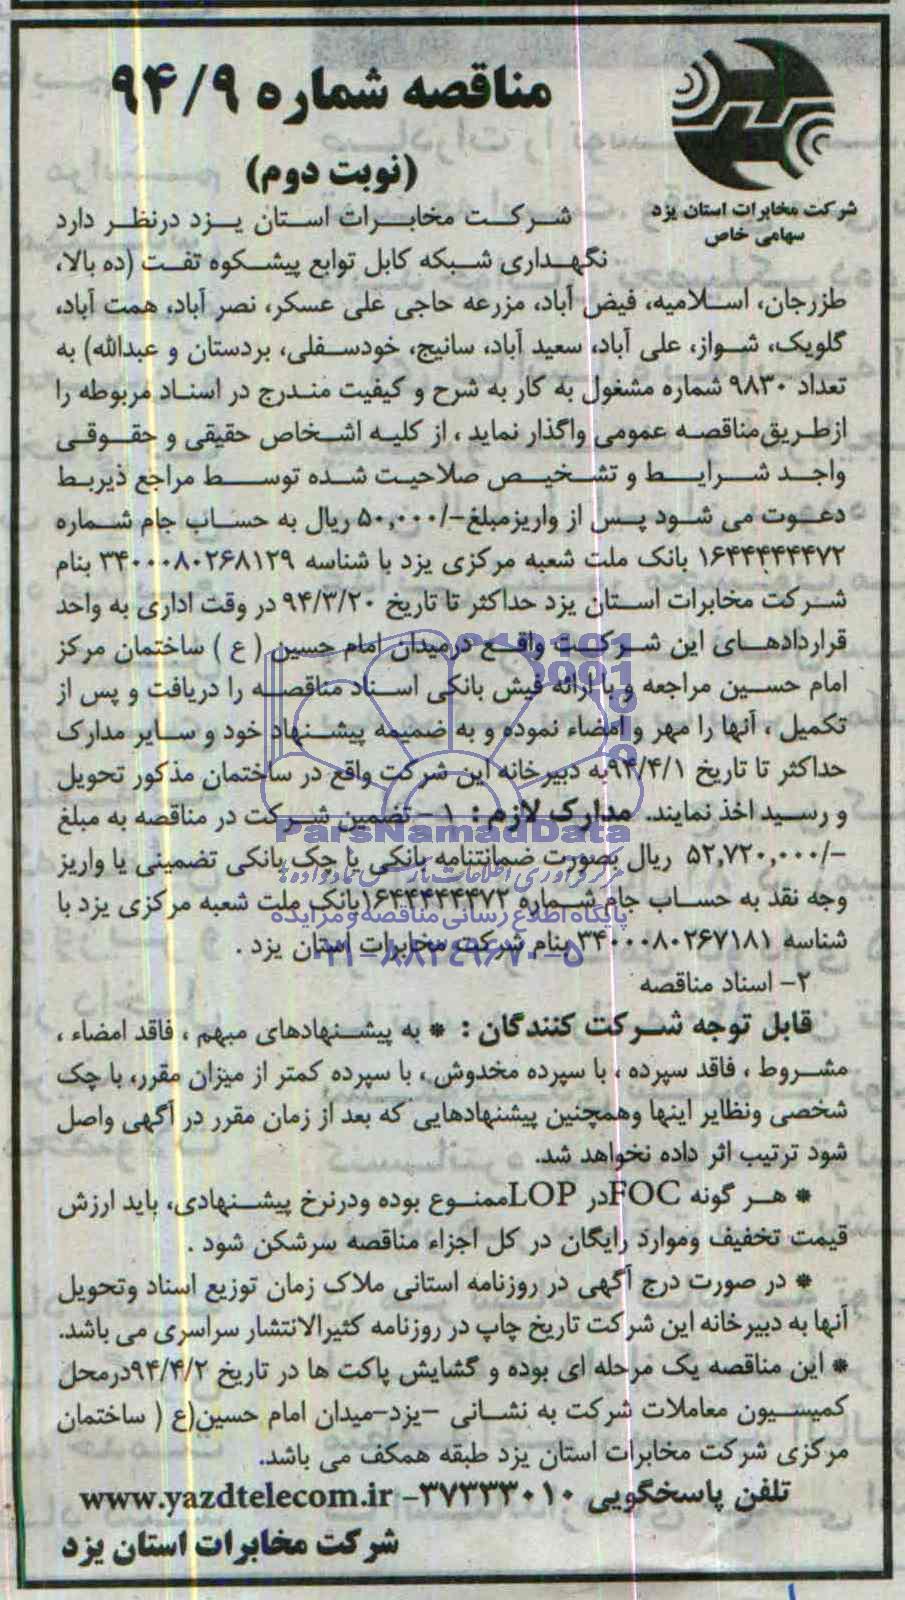 مناقصه شماره ۹۴/۹
(نوبت دوم)
شرکت مخابرات استان یزد
سهامی خاص
شرکت مخابرات استان یزد درنظر دارد
نگهداری شبکه کابل توابع پیشکوه تفت (ده بالا،
طزرجان، اسلامیه، فیض آباد، مزرعه حاجی علی عسکر، نصر آباد، همت آباد،
گلویک، شواز، علی آباد، سعید آباد، سانیج، خودسفلی، بردستان و عبدالله) به
تعداد ۹۸۳۰ شماره مشغول به کار به شرح و کیفیت مندرج در اسناد مربوطه را
ازطریق مناقصه عمومی واگذار نماید ، از کلیه اشخاص حقیقی و حقوقی
واجد شرایط و تشخیص صلاحیت شده توسط مراجع ذیربط
دعوت می شود پس از واریزمبلغ-/۵۰,۰۰۰ ریال به حساب جام شماره
۱۶۴۴۴۴۴۴۷۲ بانک ملت شعبه مرکزی یزد با شناسه ۳۴۰۰۰۸۰۲۶۸۱۲۹ بنام
شرکت مخابرات استان یزد حداکثر تا تاریخ ۹۴/۳/۲۰ در وقت اداری به واحد
قراردادهای این شرکت واقع درمیدان امام حسین ( ع ) ساختمان مرکز
امام حسین مراجعه و با ارائه فیش بانکی اسناد مناقصه را دریافت و پس از
تکمیل ، آنها را مهر و امضاء نموده و به ضمیمه پیشنهاد خود و سایر مدارک
حداکثر تا تاریخ ۹۴/۴/۱به دبیرخانه این شرکت واقع در ساختمان مذکور تحویل
و رسید اخذ نمایند. مدارک لازم : ۱ - تضمین شرکت در مناقصه به مبلغ
-/۵۲,۷۲۰,۰۰۰ ریال بصورت ضمانتنامه بانکی یا چک بانکی تضمینی یا واریز
وجه نقد به حساب جام شماره ۱۶۴۴۴۴۴۴۷۲بانک ملت شعبه مرکزی یزد با
شناسه ۳۴۰۰۰۸۰۲۶۷۱۸۱ بنام شرکت مخابرات استان یزد .
۲- اسناد مناقصه
قابل توجه شرکت کنندگان : * به پیشنهادهای مبهم ، فاقد امضاء ،
مشروط ، فاقد سپرده ، با سپرده مخدوش ، با سپرده کمتر از میزان مقرر، با چک
شخصی ونظایر اینها وهمچنین پیشنهادهایی که بعد از زمان مقرر در آگهی واصل
شود ترتیب اثر داده نخواهد شد.
* هر گونه FOCدر LOPممنوع بوده ودرنرخ پیشنهادی، باید ارزش
قیمت تخفیف وموارد رایگان در کل اجزاء مناقصه سرشکن شود .
* در صورت درج آگهی در روزنامه استانی ملاک زمان توزیع اسناد وتحویل
آنها به دبیرخانه این شرکت تاریخ چاپ در روزنامه کثیرالانتشار سراسری می باشد.
* این مناقصه یک مرحله ای بوده و گشایش پاکت ها در تاریخ ۹۴/۴/۲درمحل
کمیسیون معاملات شرکت به نشانی -یزد-میدان امام حسین(ع ( ساختمان
مرکزی شرکت مخابرات استان یزد طبقه همکف می باشد.
تلفن پاسخگویی ۳۷۳۳۳۰۱۰- www.yazdtelecom.ir
شرکت مخابرات استان یزد
ParsNamadData
پایگاه اطلاع رسانی مناقصه و مزایده
۰۲۱-۸۸۳۴۹۶۷۰-۵